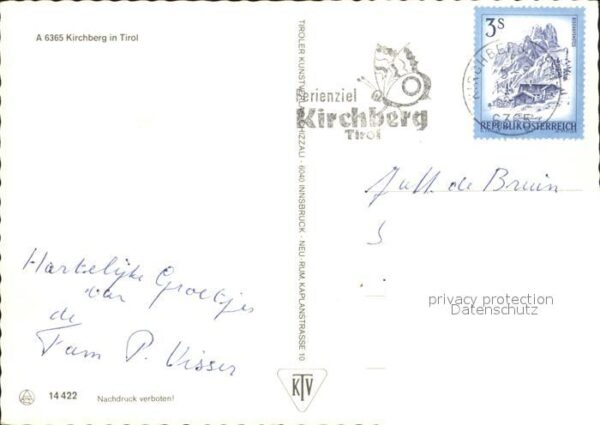 A 6365 Kirchberg in Tirol
Hartelijke Groetjes
van
de
Fam P. Visser
14 422
Nachdruck verboten!
TIROLER KUNSTVERLAG CHIZZALI · 6040 INNSBRUCK · NEU-RUM, KAPLANSTRASSE 10
KTV
Ferienziel
Kirchberg
Tirol
3S
KIRCHBERG
6365
REPUBLIK ÖSTERREICH
de Bruin
privacy protection
Datenschutz